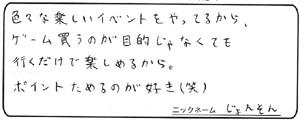 色々な楽しいイベントをやってるから、
ゲーム買うのが目的じゃなくても
行くだけで楽しめるから。
ポイントためるのが好き(笑)
ニックネーム じょんそん